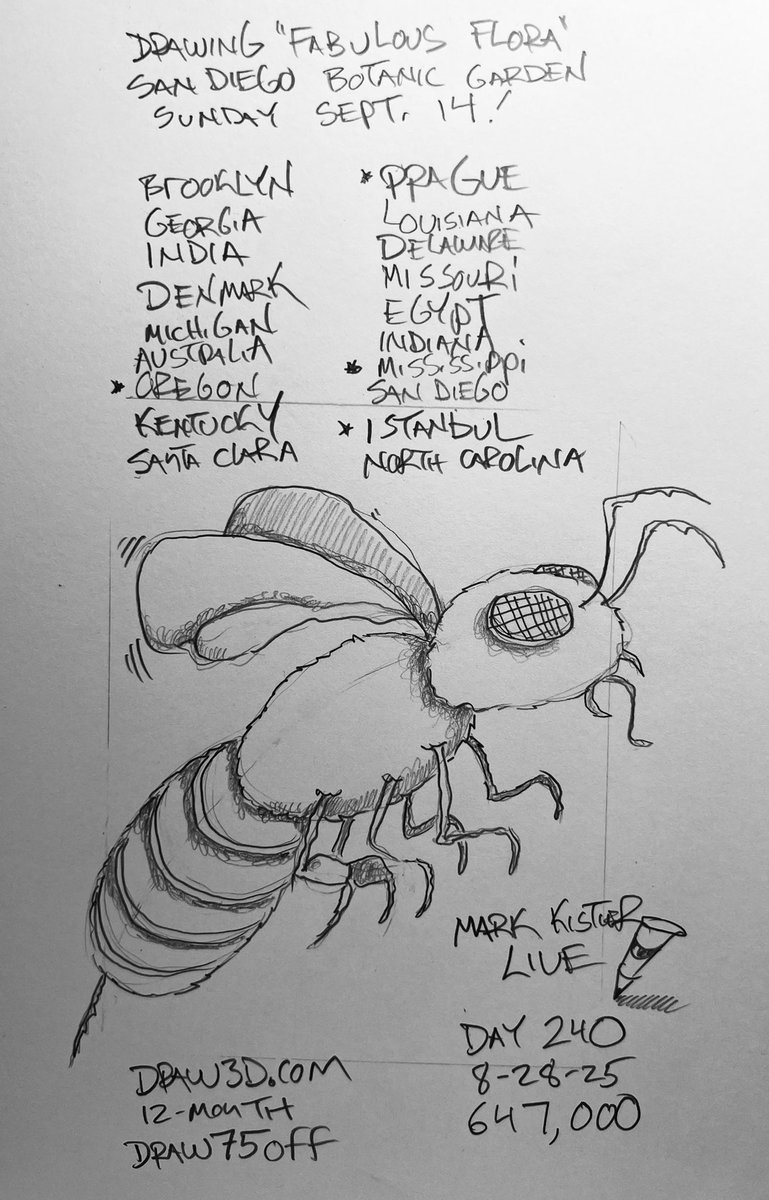 DRAWING "FABULOUS FLORA"
SAN DIEGO BOTANIC GARDEN
SUNDAY SEPT. 14!
BROOKLYN
GEORGIA
INDIA
DENMARK
MICHIGAN
AUSTRALIA
* OREGON
KENTUCKY
SANTA CLARA
* PRAGUE
LOUISIANA
DELAWARE
MISSOURI
EGYPT
INDIANA
* MISSISSIPPI
SAN DIEGO
* ISTANBUL
NORTH CAROLINA
MARK KISTLER
LIVE
DAY 240
8-28-25
647,000
DRAW3D.COM
12-MONTH
DRAW75OFF